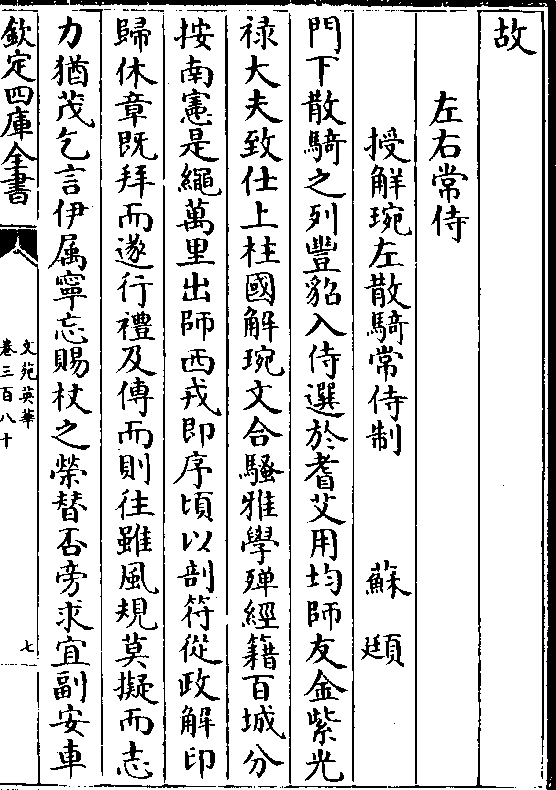 故
左右常侍
授解琬左散騎常侍制　蘇頲
門下散騎之列豐貂入侍選於耆艾用均師友金紫光
禄大夫致仕上柱國解琬文合騷雅學殫經籍百城分
按南憲是繩萬里出師西戎即序頃以剖符從政解印
歸休章既拜而遂行禮及傳而則往雖風規莫擬而志
力猶茂乞言伊屬寧忘賜杖之榮替否旁求宜副安車
欽定四庫全書
文苑英華
卷三百八十
七